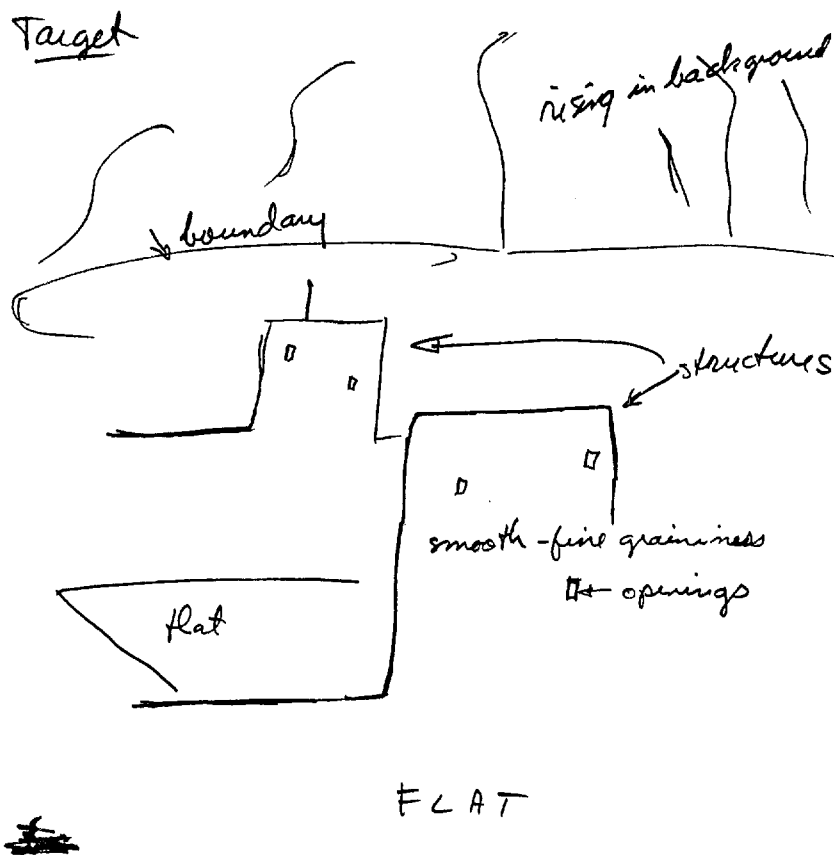 Target
rising in background
boundary
structures
smooth-fine graininess
openings
flat
FLAT